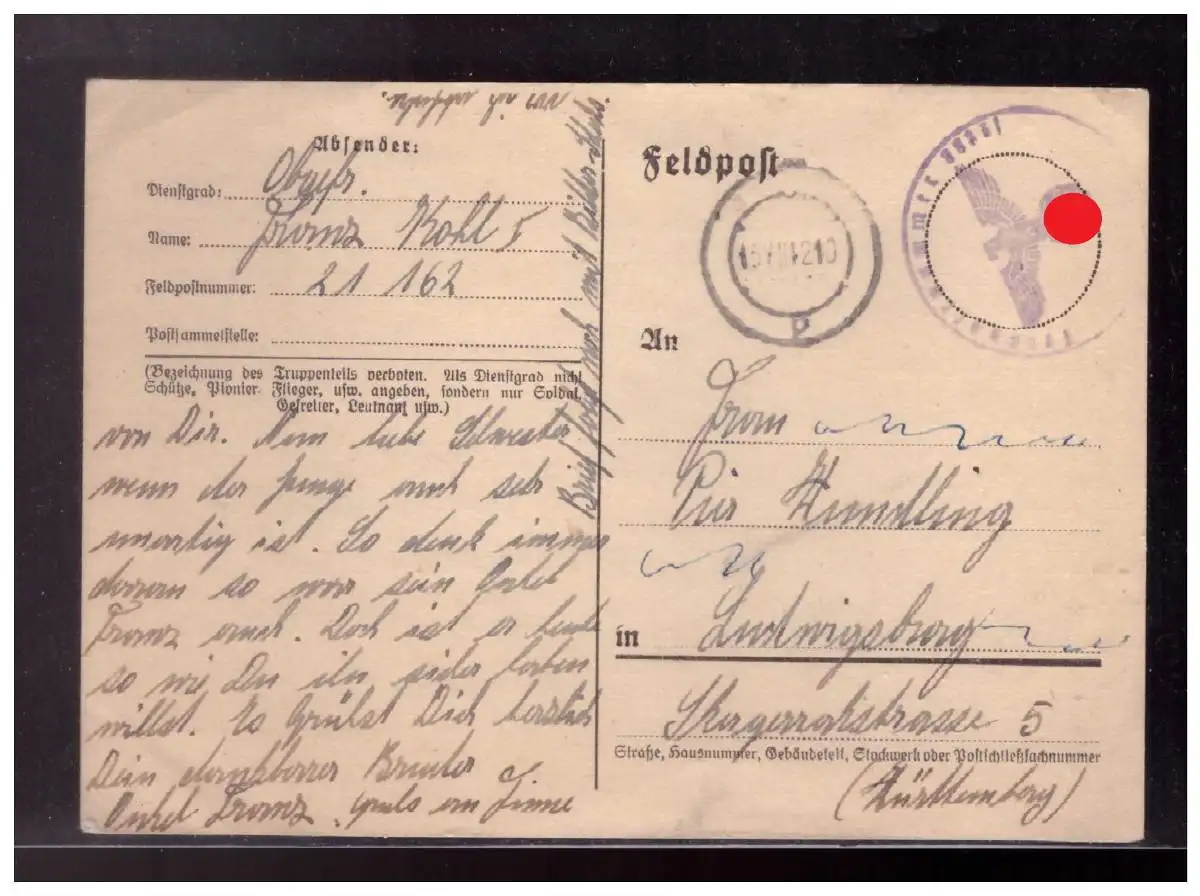 Absender:
Dienstgrad: Obgefr.
Name: Franz Kohl 5
Feldpostnummer: 21 162
Postsammelstelle:
(Bezeichnung des Truppenteils verboten. Als Dienstgrad nicht
Schütze, Pionier Flieger, usw. angeben, sondern nur Soldat,
Gefreiter, Leutnant usw.)
von Dir. Nun liebe Schwester
wenn der Junge auch sehr
unartig ist. So denk immer
daran so war sein Onkel
Franz auch. Doch ist er heute
so wie Du ihn sicher haben
willst. Es Grüßt Dich herzlich
Dein dankbarer Bruder
Onkel Franz. Gruß an
Brief folgt noch mit
Feldpost
An
Frau
Pia Kundling
in Ludwigsburg
Skagerrakstrasse 5
Straße, Hausnummer, Gebäudeteil, Stockwerk oder Postschließfachnummer
(Württemberg)